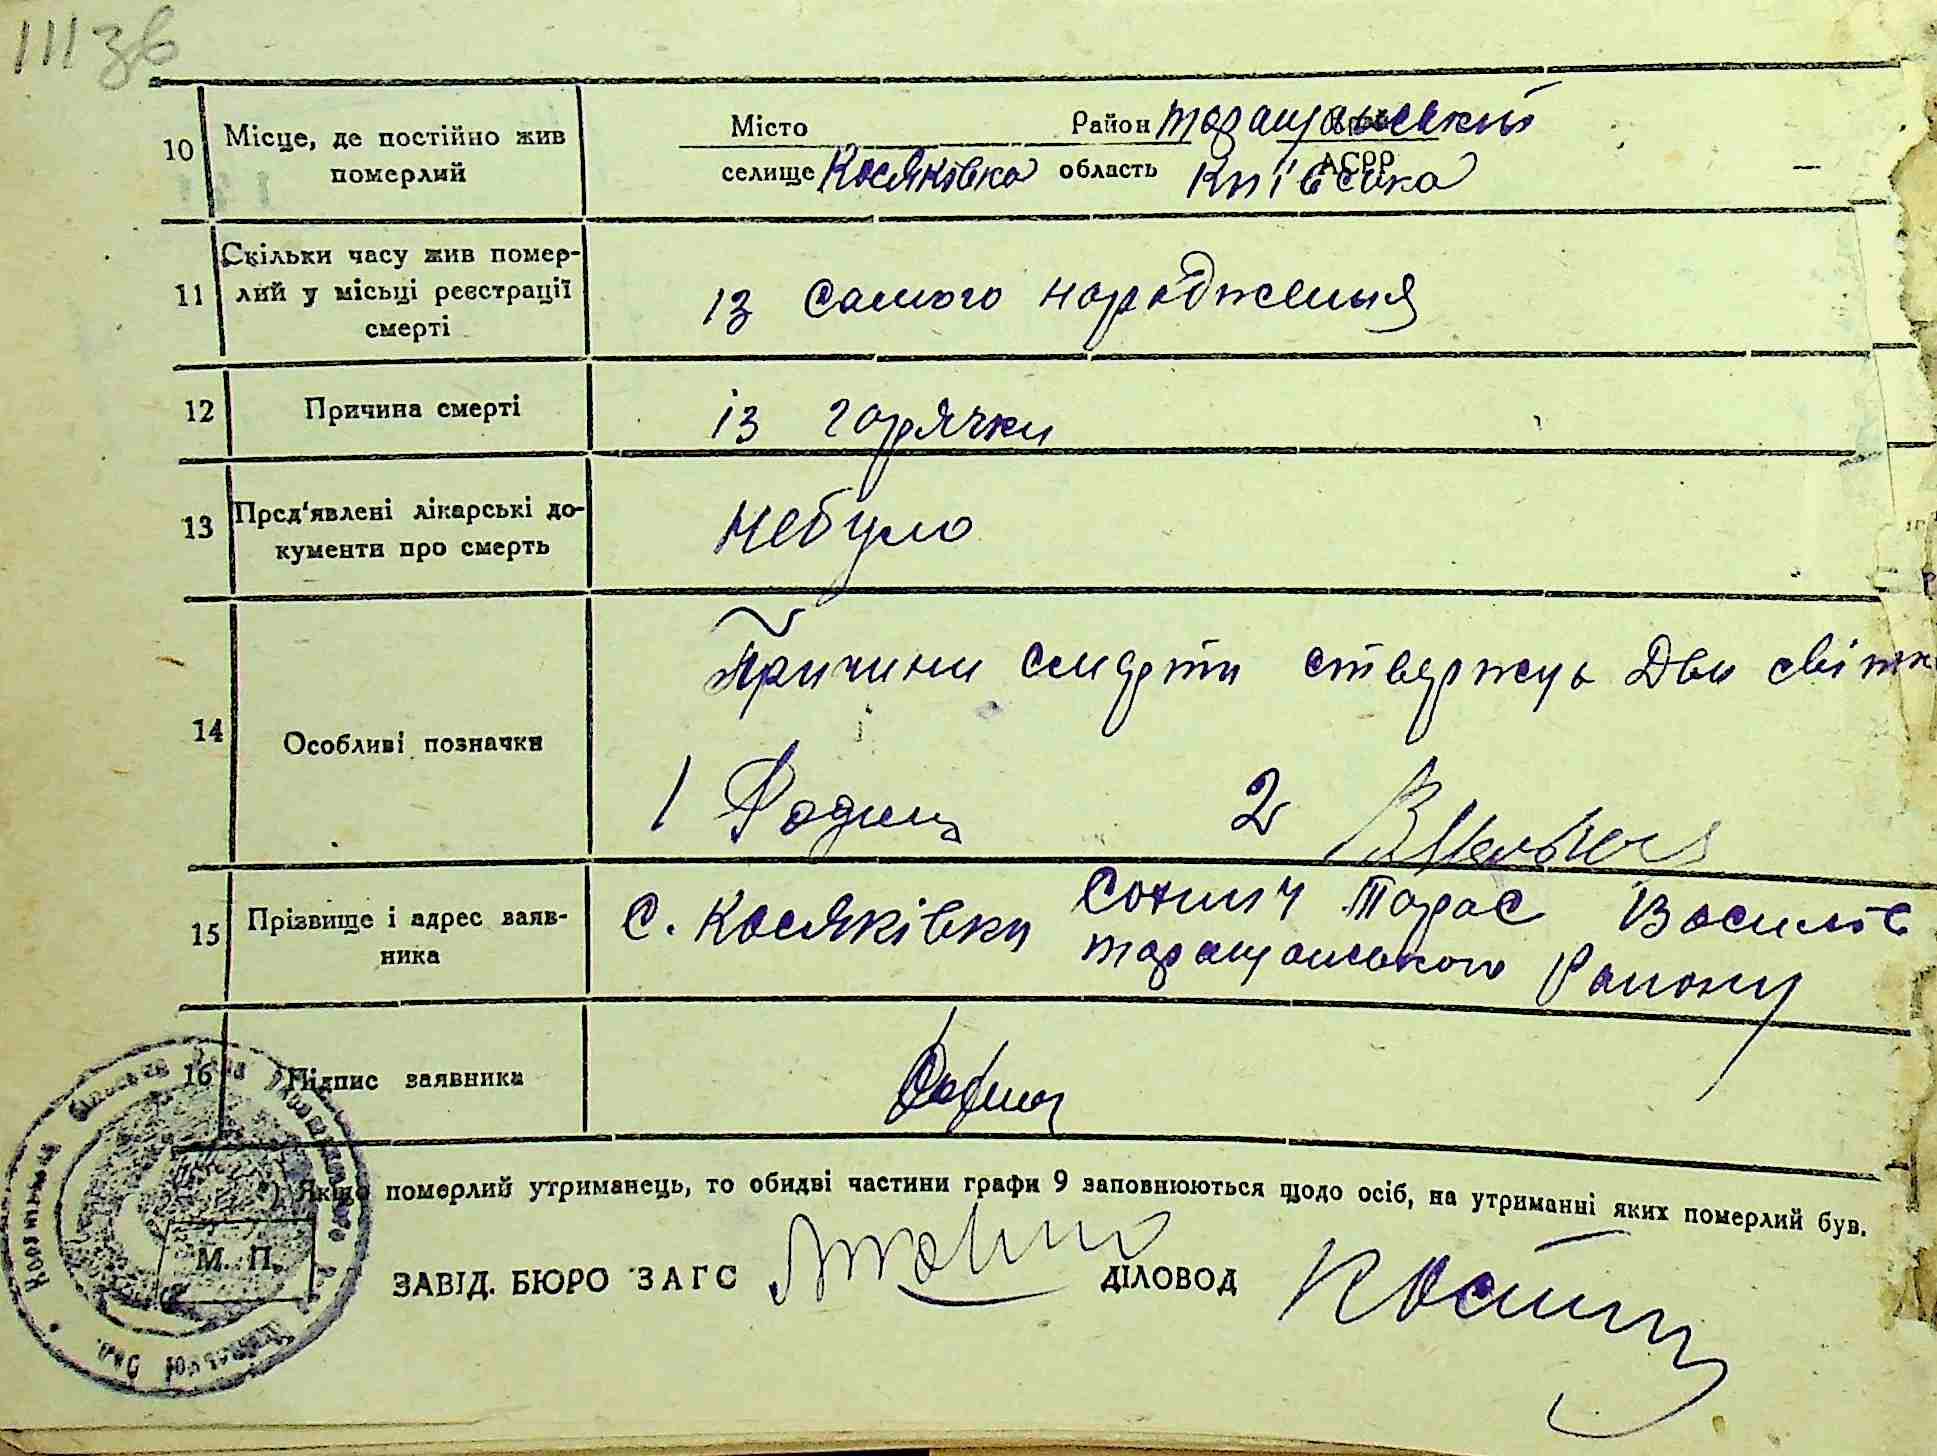 111 зв
10 Місце, де постійно жив померлий
Місто Район таращанський Край
селище Косяківка область АСРР київська
11 Скільки часу жив помер-
лий у місьці реєстрації
смерті
із самого народження
12 Причина смерті
із горячки
13 Пред'явлені лікарські до-
кументи про смерть
небуло
14 Особливі позначки
Причини смерти ствержує Два світк
1 2
15 Прізвище і адрес заяв-
ника
с. Косяківки Тарас Василів
таращанського Району
16 Підпис заявника
*) Якщо померлий утриманець, то обидві частини графи 9 заповнюються щодо осіб, на утриманні яких померлий був.
М. П.
ЗАВІД. БЮРО ЗАГС ДІЛОВОД